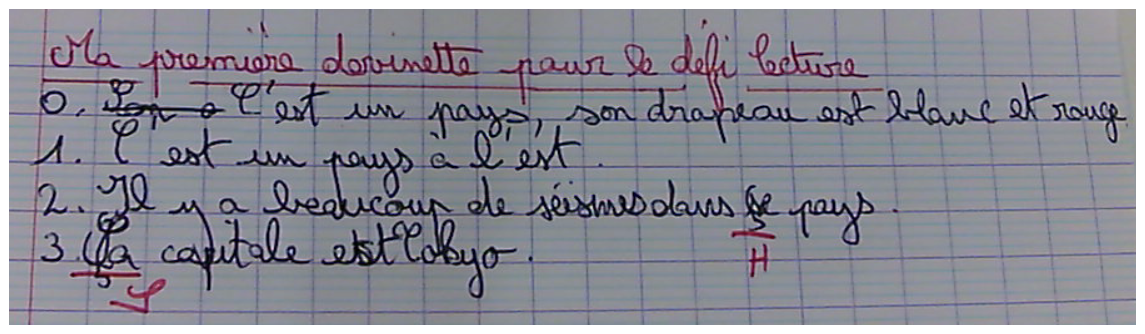 Ma première devinette pour le défi lecture
0. C'est un pays, son drapeau est blanc et rouge.
1. C'est un pays à l'est.
2. Il y a beaucoup de séismes dans se pays.
3. Ça capitale est Tokyo.
H
S